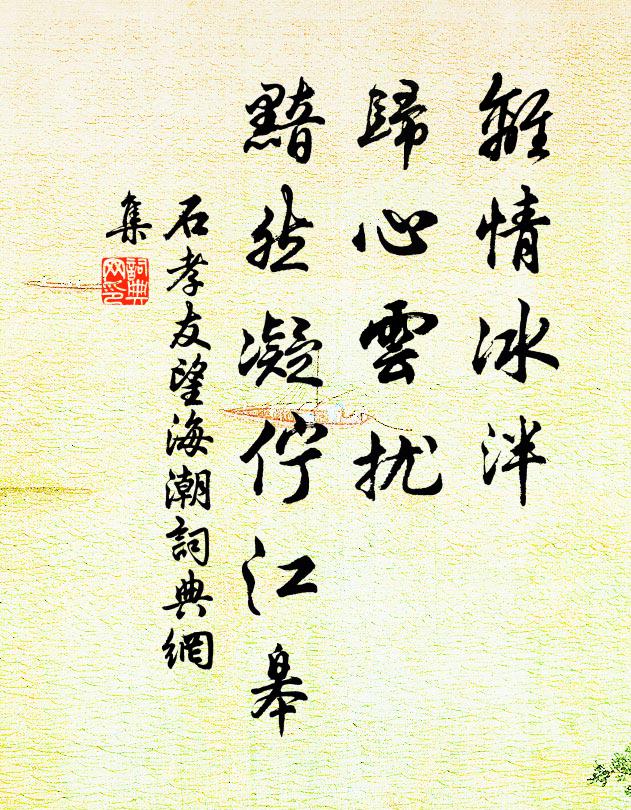 離情冰泮
歸心雲扰
黯然凝佇江皋
石孝友望海潮詞典網
集
詞典网印